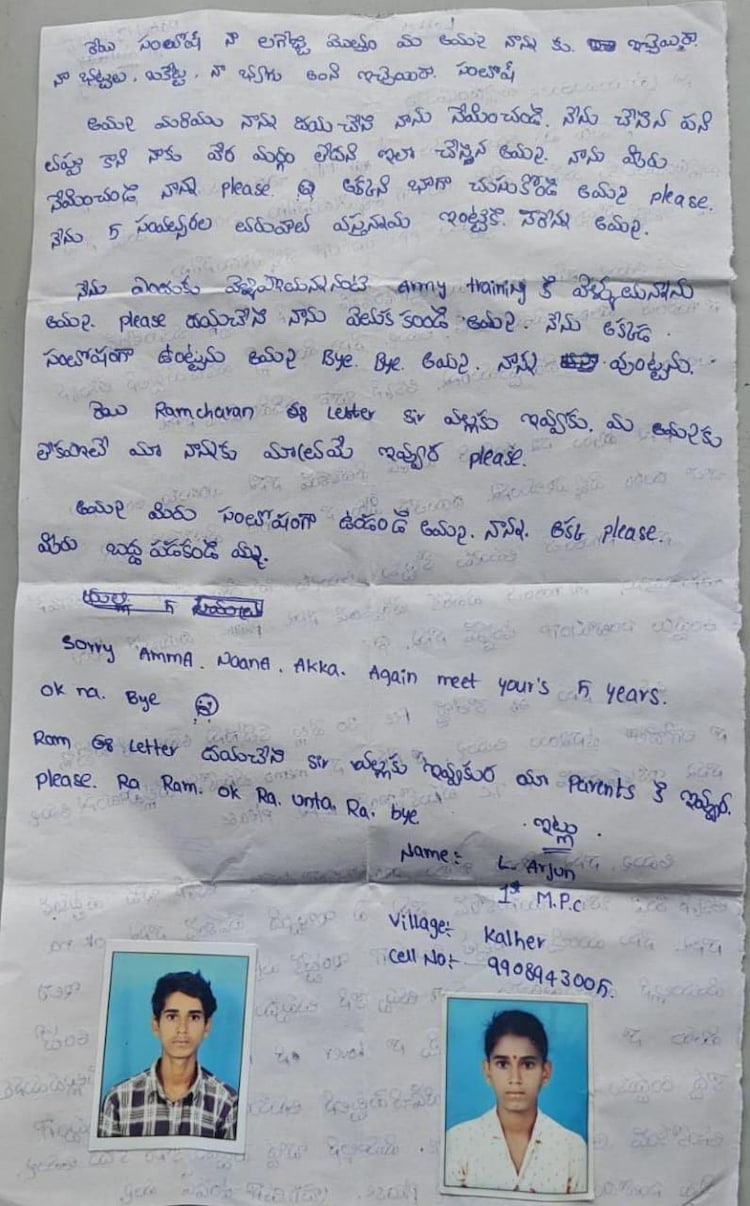 రేయ్ సంతోష్ నా లగేజ్జి మొత్తం మా అమ్మ నాన్న కు ఇచ్చెయిరా.
నా బట్టలు, బకెట్టు, నా బ్యాగు అంనీ ఇచ్చెయిరా. సంతోష్
అమ్మ మరియు నాన్న దయ చేసి నాను నేమించండి. నేను చేసిన పని
తప్పు కాని నాకు వేర మర్గం లేదునే ఇలా చెస్తిన అమ్మ. నాను మీరు
నేమించండి నాన్న please. అక్కని బాగా చుసుకోండి అమ్మ please.
నేను 5 సంవత్సరల తరువాత వస్తనామ ఇంట్టికి. సారెన్న అమ్మ.
నేను ఎందుకు వెళ్ళిపోయిన్ననంటే Army training కి వెళ్ళుతున్నాను
అమ్మ. please దయచేసి నాను వెతుక కండి అమ్మ. నేను అక్కడ
సంతోషంగా ఉంట్టును అమ్మ Bye. Bye. అమ్మ. నాన్న వుంట్టును.
రేయి Ramcharan ఈ Letter sir వల్లకు ఇవ్వాకు. మ అమ్మకు
లేకపోతే మా నానకు మాత్రమే ఇవ్వురా please.
అమ్మ మీరు సంతోషంగా ఉండండి అమ్మ. నాన్న. అక్క please.
మీరు బద్ద పడకండి
Sorry AmmA. Naana. Akka. Again meet your's 5 years.
ok na. Bye
Ram ఈ Letter దయచేసి sir వల్లకు ఇవ్వకుర మా Parents కి ఇవ్వార.
please. Ra Ram. ok Ra. unta. Ra. bye
ఇట్లు
Name:- L. Arjun
1st M.P.c
Village:- Kalher
Cell No:- 9908943005.